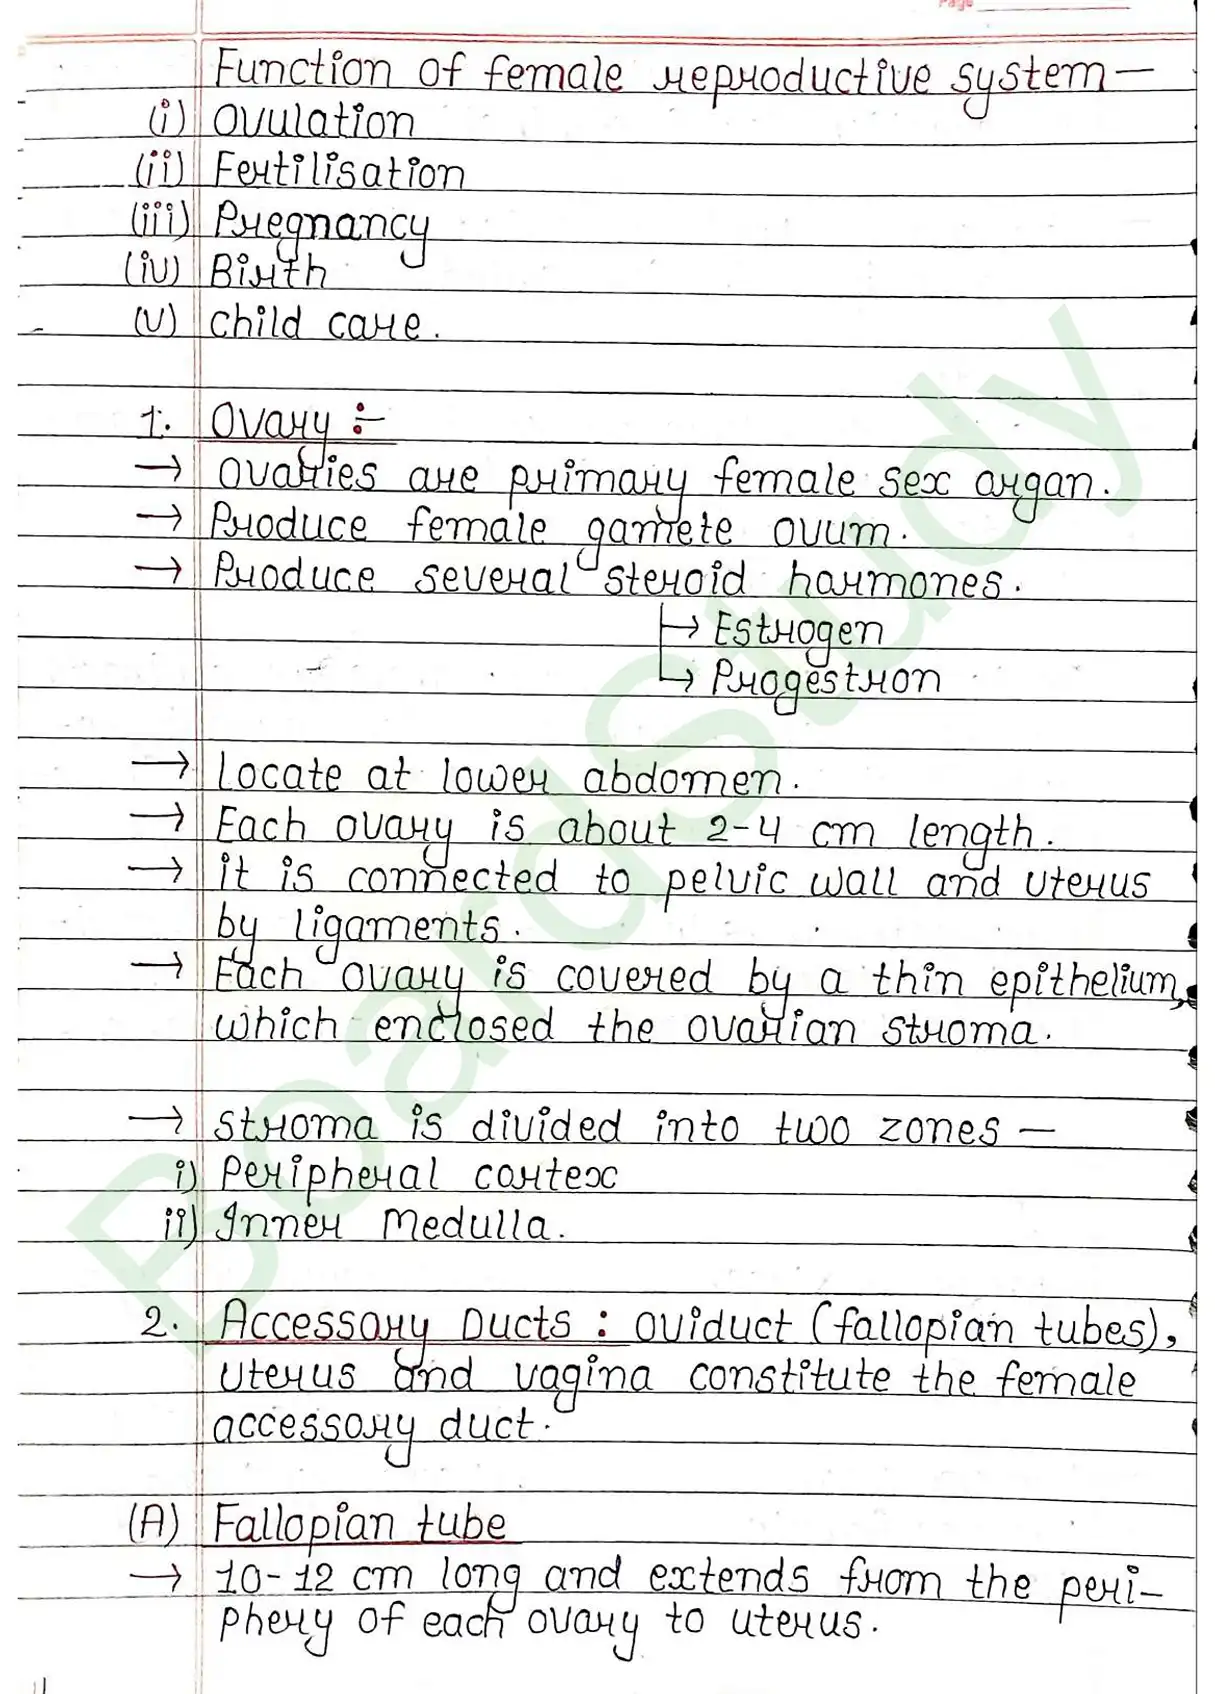 Page
Function of female reproductive system —
(i) Ovulation
(ii) Fertilisation
(iii) Pregnancy
(iv) Birth
(v) child care.
1. Ovary :-
→ Ovaries are primary female sex organ.
→ Produce female gamete ovum.
→ Produce several steroid hormones.
→ Estrogen
→ Progestron
→ Locate at lower abdomen.
→ Each ovary is about 2-4 cm length.
→ it is connected to pelvic wall and uterus
by ligaments.
→ Each ovary is covered by a thin epithelium,
which enclosed the ovarian stroma.
→ stroma is divided into two zones —
i) Peripheral cortex
ii) Inner Medulla.
2. Accessory Ducts : oviduct (fallopian tubes),
uterus and vagina constitute the female
accessory duct.
(A) Fallopian tube
→ 10-12 cm long and extends from the peri-
phery of each ovary to uterus.
BoardStudy